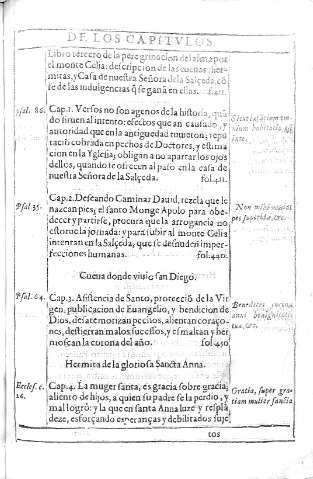 DE LOS CAPITVLOS
Libro tercero de la peregrinacion del alma por
el monte Celia: descripcion de las cueuas, her-
mitas, y Casa de nuestra Señora de la Salçeda, cõ
se de las indulgencias q̃ se ganã en ellas. f.421.
Psal. 86.
Cap.1. Versos no son agenos de la historia, quã
do siruen al intento: efectos que an causado, y
autoridad que en la antiguedad tuuieron; repu-
tacion cobrada en pechos de Doctores, y estima
cion en la Yglesia; obligan a no apartar los ojos
dellos, quando te ofrecen al paso en la casa de
nuestra Señora de la Salçeda. fol.421.
Psal.35.
Cap.2. Deseando Caminar Dauid, rezela que le
nazcan pies; el santo Monge Apulo para obe-
decer y partirse, procura que la arrogancia no
estorue la jornada: y para subir al monte Celia
intentan en la Salçeda, que se desnuden imper-
fecciones humanas. fol.440.
Non
pes superbiæ, &c.
Cueua donde viuio san Diego.
Psal.64.
Cap.3. Asistencia de Santo, protecciõ de la Vir
gen, publicacion de Euangelio, y bendicion de
Dios, desatemorizan pechos, alientan coraço-
nes, destierran malos sucesos, y esmaltan y her
mosean la corona del año. fol.450
Benedices coronæ
anni benignitatis
tuæ, &c.
Hermita de la gloriosa Sancta Anna.
Eccles. c.
26.
Cap.4. La muger santa, es gracia sobre gracia,
aliento de hijos, a quien su padre se la perdio, y
mal logrò: y la que en santa Anna luze y resplã
deze, esforçando esperanças y debilitados suje
Gratia, super gra-
tiam mulier sancta
tos